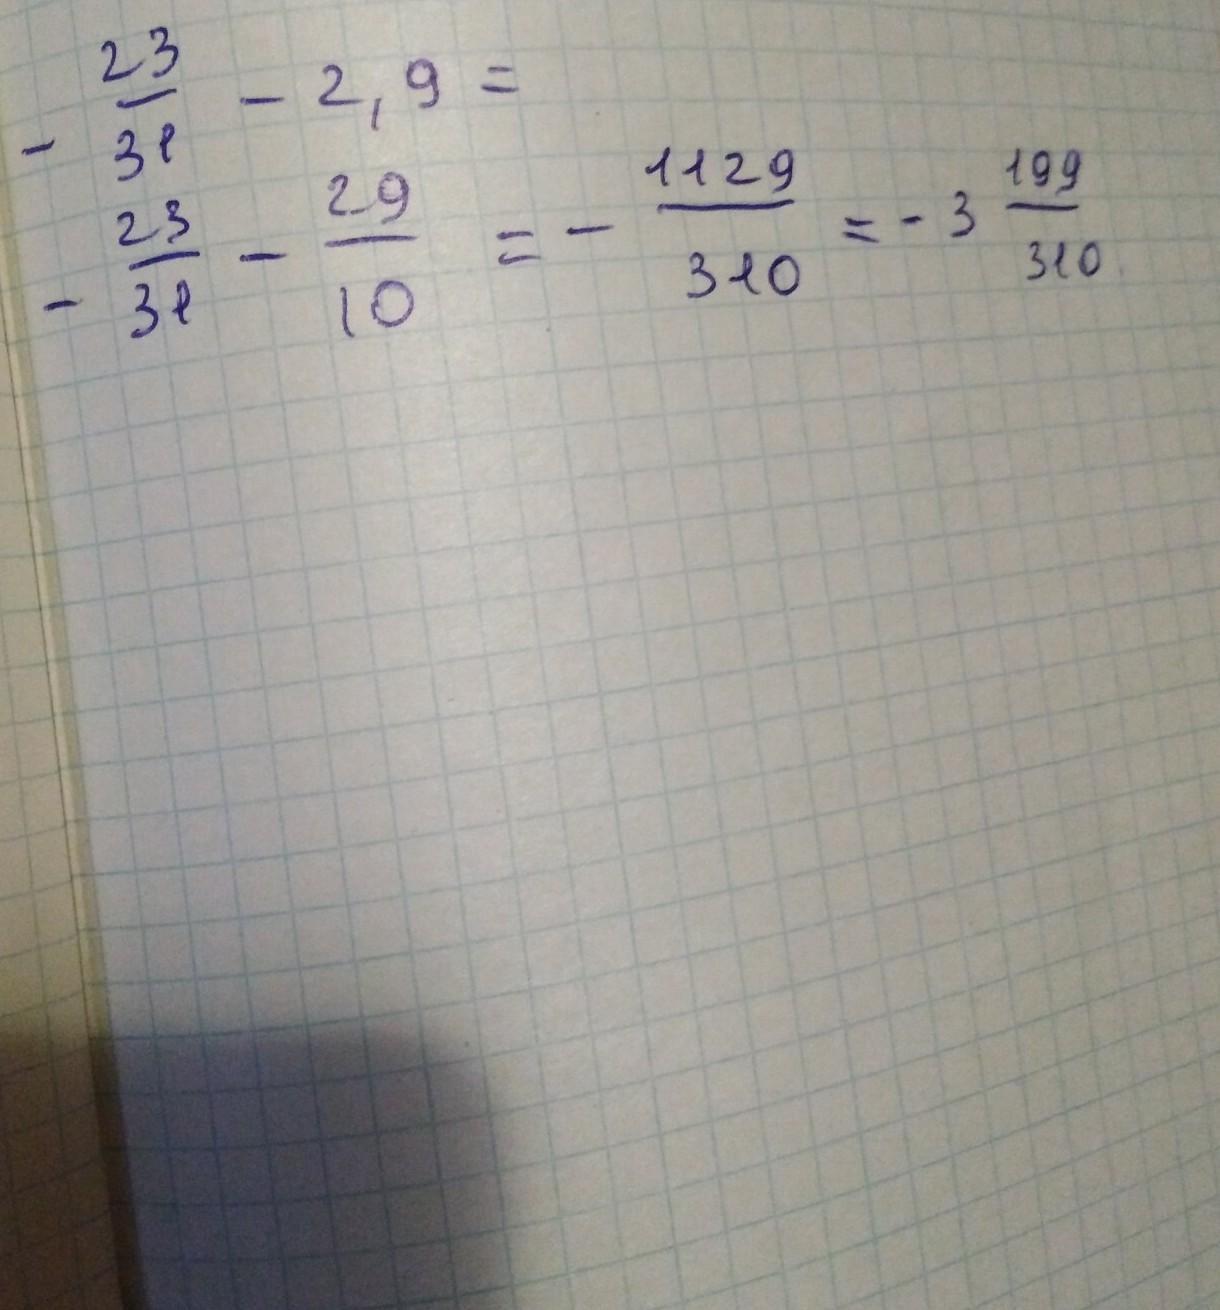 - 23/31 - 2,9 =
- 23/31 - 29/10 = - 1129/310 = - 3 199/310